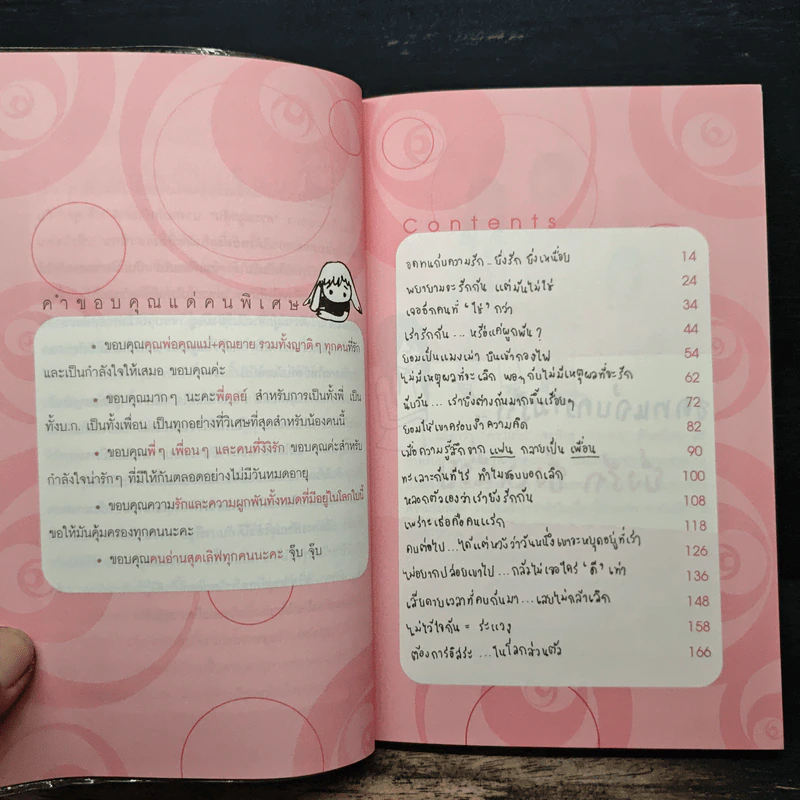 คำขอบคุณแด่คนพิเศษ
• ขอบคุณคุณพ่อคุณแม่+คุณยาย รวมทั้งญาติๆ ทุกคนที่รัก
และเป็นกำลังใจให้เสมอ ขอบคุณค่ะ
• ขอบคุณมากๆ นะคะพี่ตุลย์ สำหรับการเป็นทั้งพี่ เป็น
ทั้งบ.ก. เป็นทั้งเพื่อน เป็นทุกอย่างที่วิเศษที่สุดสำหรับน้องคนนี้
• ขอบคุณพี่ๆ เพื่อนๆ และคนที่งิงิรัก ขอบคุณค่ะสำหรับ
กำลังใจน่ารักๆ ที่มีให้กันตลอดอย่างไม่มีวันหมดอายุ
• ขอบคุณความรักและความผูกพันทั้งหมดที่มีอยู่ในโลกใบนี้
ขอให้มันคุ้มครองทุกคนนะคะ
• ขอบคุณคนอ่านสุดเลิฟทุกคนนะคะ จุ๊บ จุ๊บ
Contents
อดทนกับความรัก...ยิ่งรัก ยิ่งเหนื่อย 14
พยายามจะรักกัน แต่มันไม่ใช่ 24
เจออีกคนที่ "ใช่" กว่า 34
เรารักกัน... หรือแค่ผูกพัน? 44
ยอมเป็นแมงเม่า บินเข้ากองไฟ 54
ไม่มีเหตุผลที่จะเลิก พอๆ กับไม่มีเหตุผลที่จะรัก 62
นับวัน... เรายิ่งต่างกันมากขึ้นเรื่อยๆ 72
ยอมให้เขาครอบงำความคิด 82
เมื่อความรู้สึกจาก แฟน กลายเป็น เพื่อน 90
ทะเลาะกันทีไร ทำไมชอบบอกเลิก 100
หลอกตัวเองว่าเรายังรักกัน 108
เพราะเธอคือคนแรก 118
คบต่อไป...ได้แต่หวังว่าวันหนึ่งเขาจะหยุดอยู่ที่เรา 126
ไม่อยากปล่อยเขาไป...กลัวไม่เจอใคร "ดี" เท่า 136
เสียดายเวลาที่คบกันมา...เลยไม่กล้าเลิก 148
ไม่ไว้ใจกัน = ระแวง 158
ต้องการอิสระ...ในโลกส่วนตัว 166